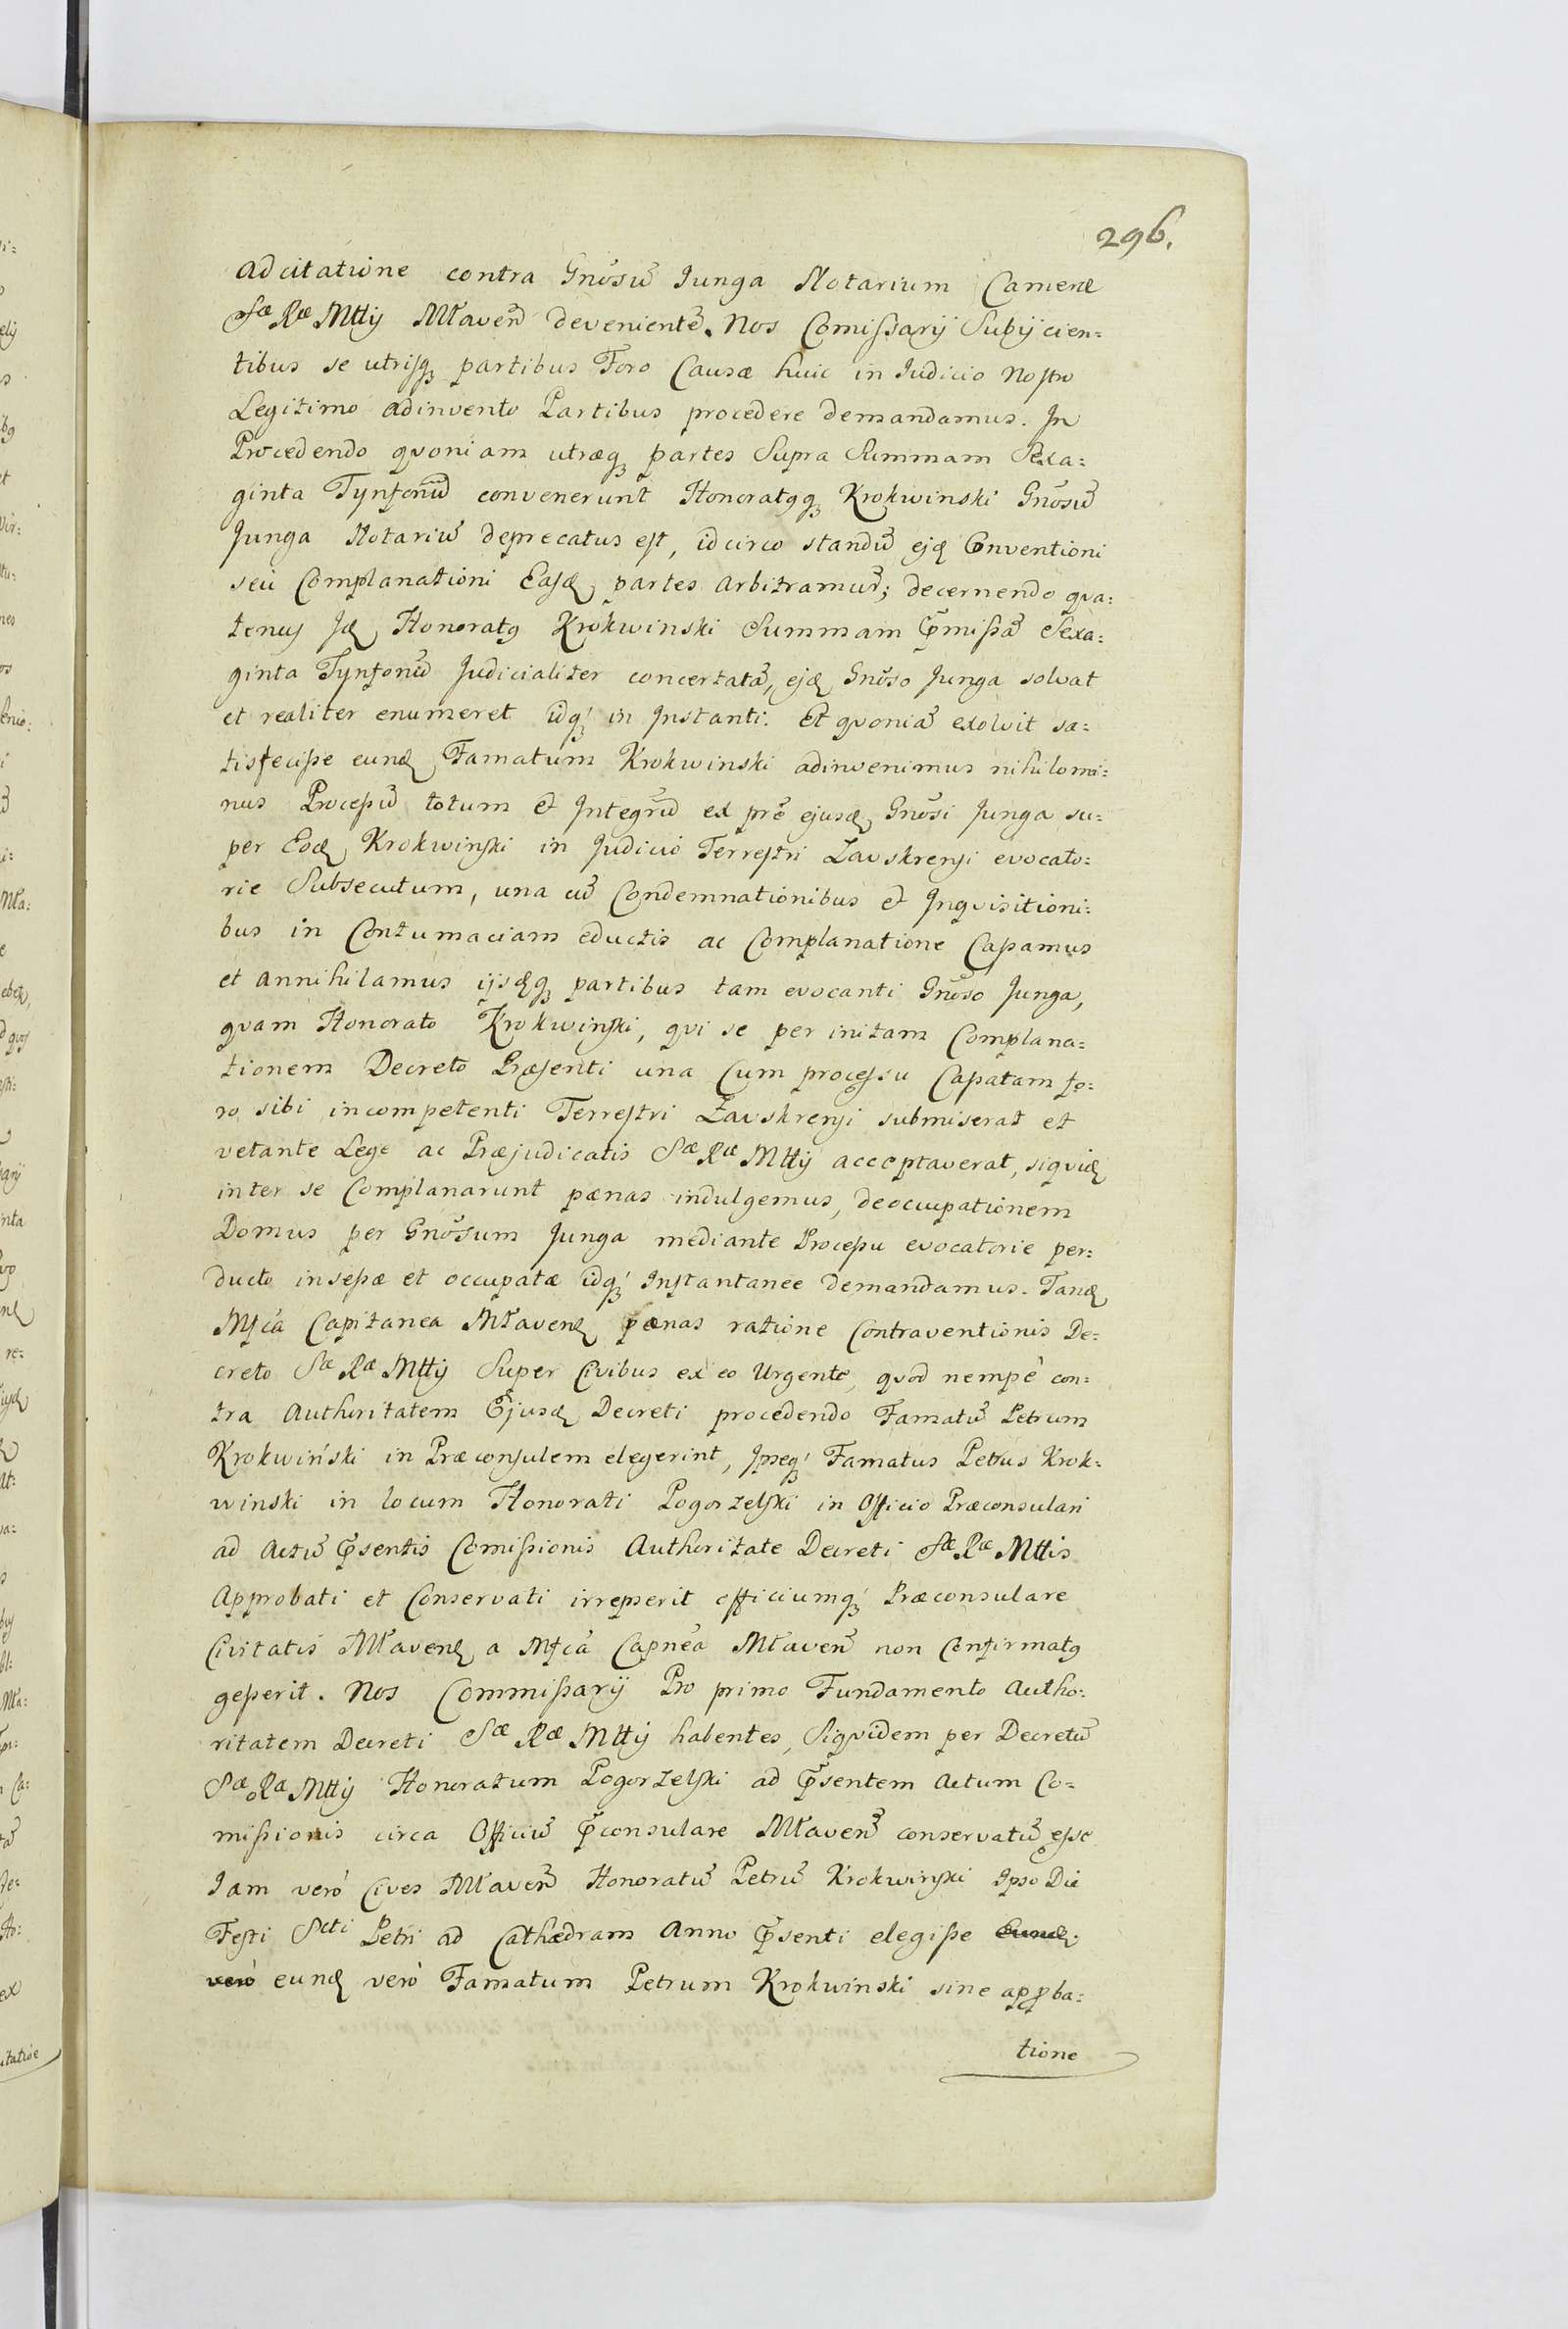 296.
adcitatione contra Gnõsũ Junga Notarium Cameræ
Sæ Ræ Mttĳ Mławeñ devenientẽ. Nos Comißarĳ Subĳcien=
tibus se utrisq̃ partibus Foro Causæ huic in Judicio Nostro
Legitimo adinvento Partibus procedere demandamus. In
Procedendo qvoniam utræq̃ partes Supra Summam Sexa=
ginta Tynfonũ convenerunt Honoratqq̃ Krokwinski Gnõsũ
Junga Notariũ deprecatus est, idcirco standũ ejd Conventioni
seu Complanationi Easd partes arbitramur̃; decernendo qva=
tenus Jd Honoratq Krokwinski Summam p̃mißã Sexa=
ginta Tynfonũ Judicialiter concertatã, ejd Gnõso Junga solvat
et realiter enumeret idq́ in Instanti. Et qvoniã exolvit sa=
tisfeciße eund Famatum Krokwinski adinvenimus nihilomi=
nus Proceßũ totum et Integrũ ex prẽ ejusd Gnõsi Junga su=
per Eod Krokwinski in Judicio Terrestri Zavskrensi evocato=
rie Subsecutum, una cũ Condemnationibus et Inqvisitioni=
bus in Contumaciam eductis ac Complanatione Caßamus
et annihilamus ĳsdq̃ partibus tam evocanti Gnõso Junga,
qvam Honorato Krokwinski, qvi se per initam Complana=
tionem Decreto Præsenti una Cum processu Caßatam fo=
ro sibi incompetenti Terrestri Zavskrensi submiserat et
vetante Lege ac Præjudicatis Sæ Ræ Mttĳ acceptaverat, siqvid
inter se Complanarunt pænas indulgemus, deoccupationem
Domus per Gnõsum Junga mediante Proceßu evocatorie per=
ducto inseßæ et occupatæ idq́ Instantanee demandamus. Tand
Mfcã Capitanea Mławend pænas ratione Contraventionis De=
creto Sæ Ræ Mttĳ Super Civibus ex eo Urgente, qvod nempè con=
tra Authoritatem Ejusd Decreti procedendo Famatũ Petrum
Krokwiński in Præconsulem elegerint, Ipseq́ Famatus Petrus Krok=
winski in locum Honorati Pogorzelski in Officio Præconsulari
ad Actũ p̃sentis Comißionis Authoritate Decreti Sæ Ræ Mttis
Approbati et Conservati irrepserit officiumq́ Præconsulare
Civitatis Mławend a Mfcã Capñea Mławeñ non Confirmatq
geßerit. Nos Commißarĳ Pro primo Fundamento Autho=
ritatem Decreti Sæ Ræ Mttĳ habentes, Siqvidem per Decretũ
Sæ Ræ Mttĳ Honoratum Pogorzelski ad p̃sentem Actum Co=
mißionis circa Officiũ p̃consulare Mławeñ conservatũ esse
Iam verò Cives Mławeñ Honoratũ Petrũ Krokwinski Ipso Die
Festi Scti Petri ad Cathædram Anno p̃senti elegiße Eund
verò eund verò Famatum Petrum Krokwinski sine appba=
tione